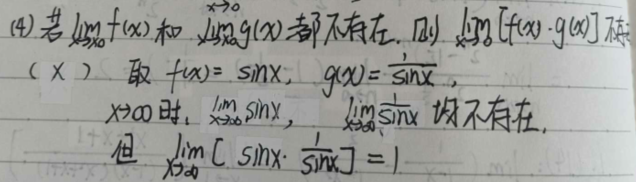 (4) 若 lim x→x0 f(x) 和 lim x→x0 g(x) 都不存在. 则 lim x→x0 [f(x)·g(x)] 不存
(×) 取 f(x)= sinx, g(x)= 1/sinx,
x→∞时, lim x→∞ sinx, lim x→∞ 1/sinx 均不存在.
但 lim x→∞ [ sinx· 1/sinx ] = 1